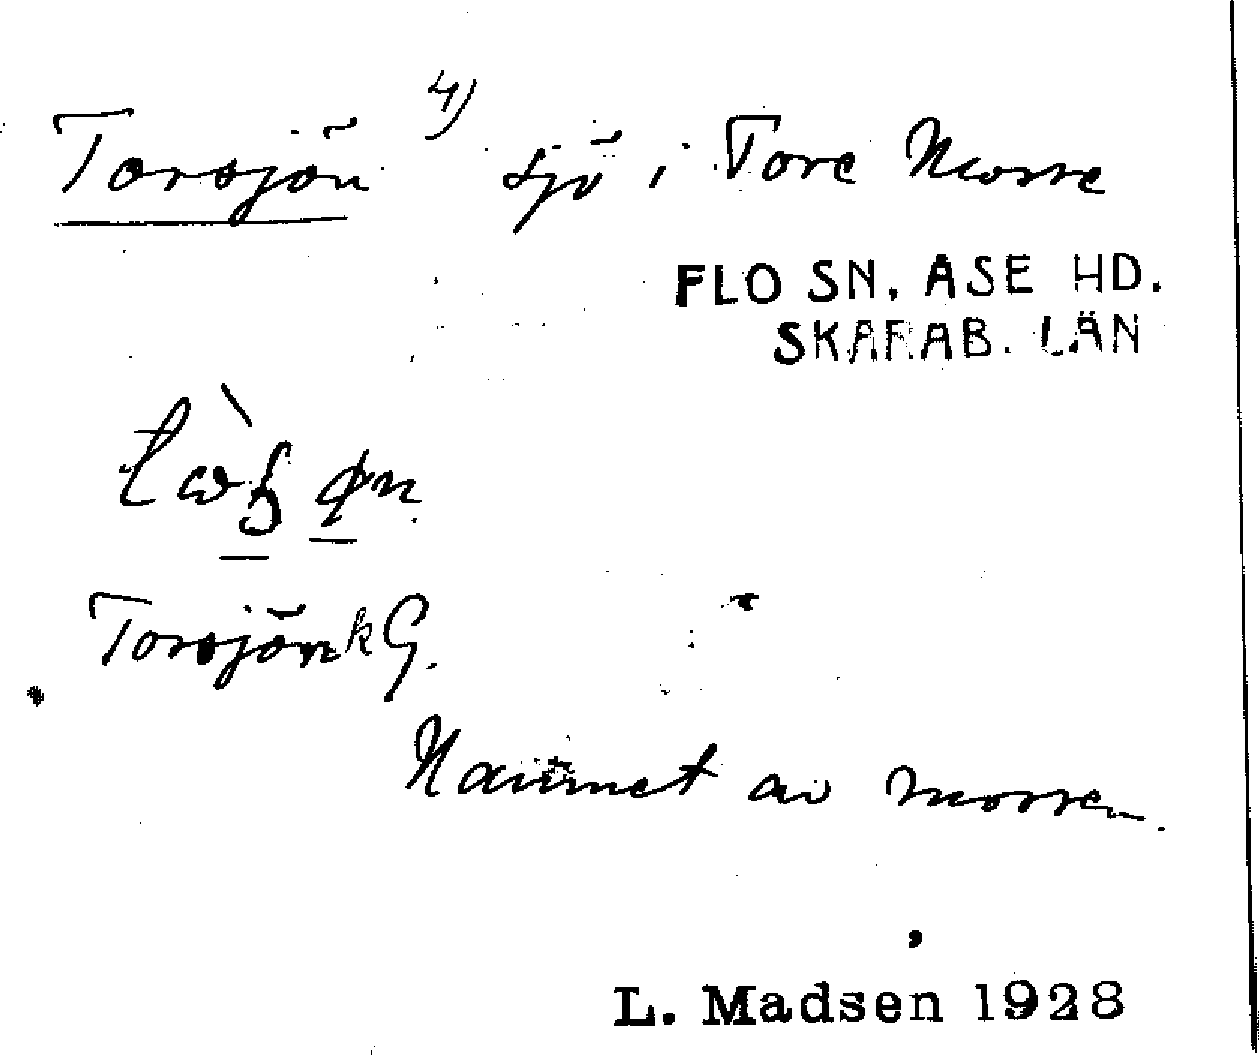 Torsjön 4) sjö i Tore Mosse
FLO SN. ÅSE HD.
SKARAB. LÄN
Torsjön k G.
Namnet av mossen.
L. Madsen 1928